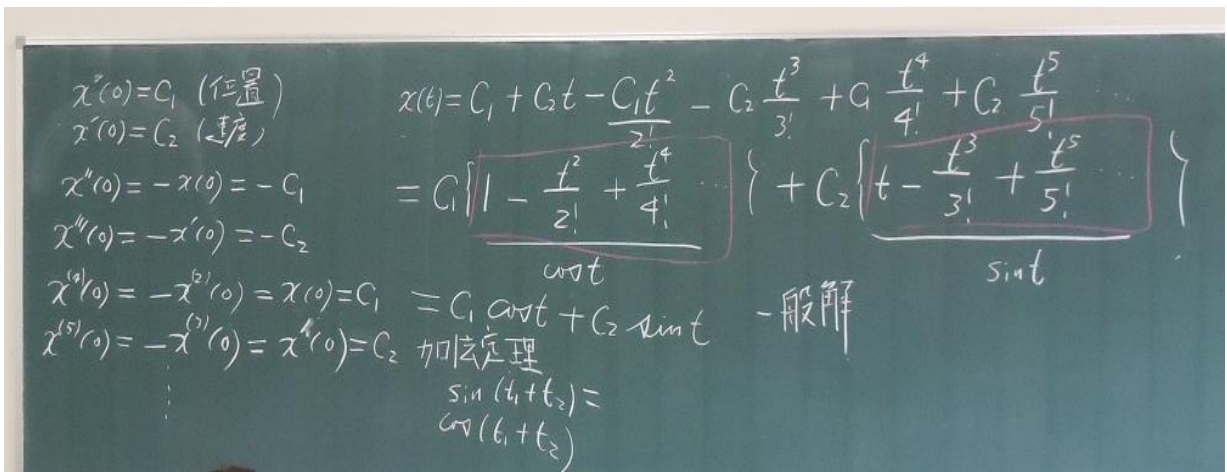 x(0)=C₁ (位置)
x'(0)=C₂ (速度)
x''(0)=-x(0)=-C₁
x'''(0)=-x'(0)=-C₂
x⁽⁴⁾(0)=-x⁽²⁾(0)=x(0)=C₁
x⁽⁵⁾(0)=-x⁽³⁾(0)=x'(0)=C₂
⋮
x(t)=C₁+C₂t-C₁t²/2!-C₂t³/3!+C₁t⁴/4!+C₂t⁵/5!…
=C₁{1-t²/2!+t⁴/4!…}+C₂{t-t³/3!+t⁵/5!…}
cost sint
=C₁cost+C₂sint 一般解
加法定理
sin(t₁+t₂)=
cos(t₁+t₂)